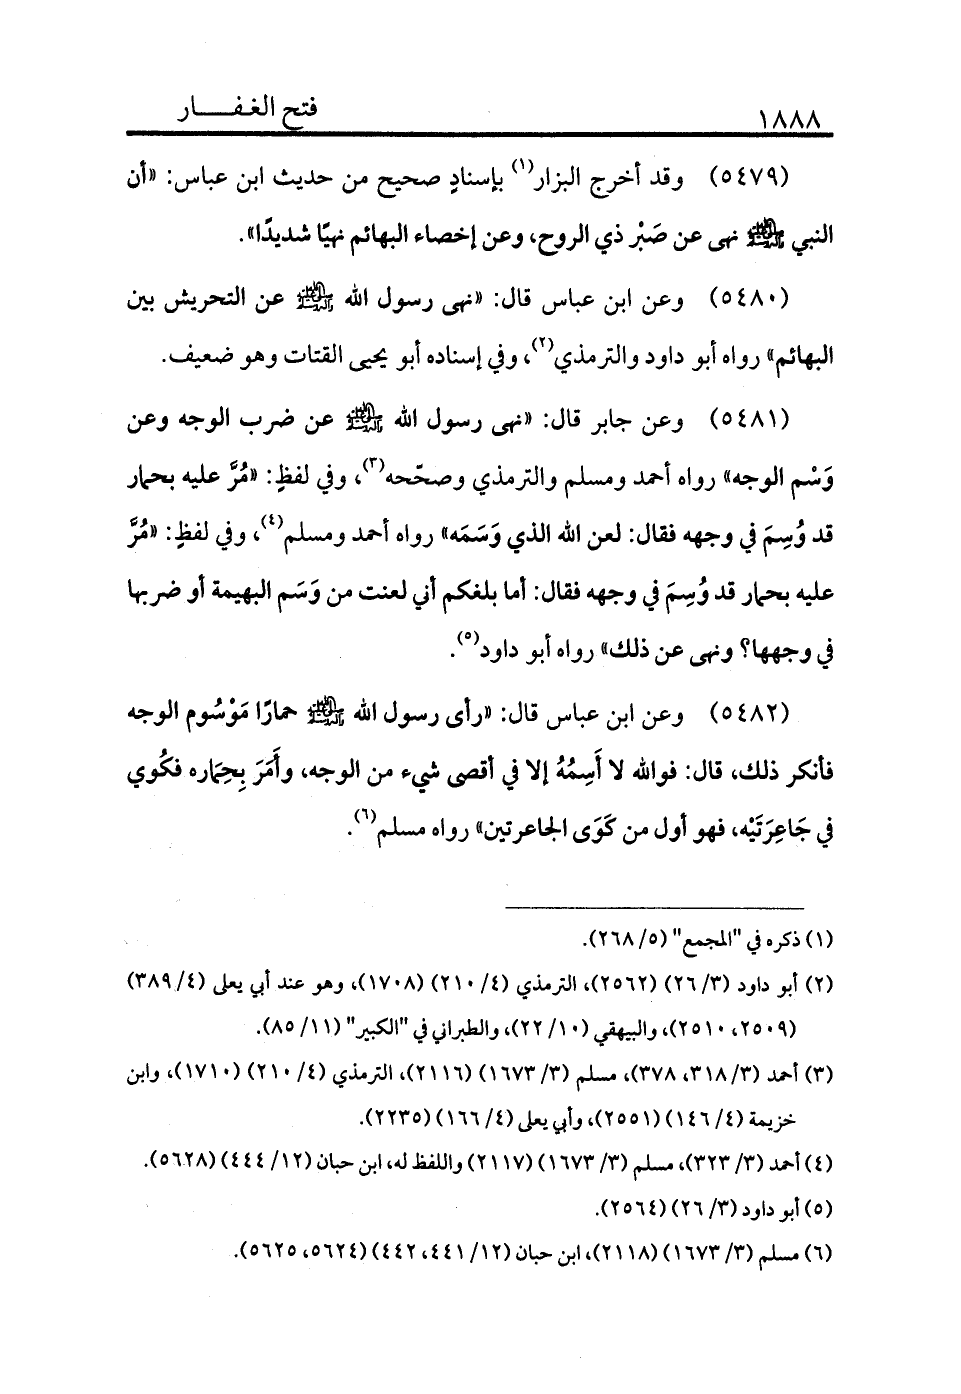 ١٨٨٨ فتح الغفـــــار
(٥٤٧٩) وقد أخرج البزار(١) بإسنادٍ صحيح من حديث ابن عباس: «أن
النبي ﷺ نهى عن صَبْر ذي الروح، وعن إخصاء البهائم نهيًا شديدًا».
(٥٤٨٠) وعن ابن عباس قال: «نهى رسول الله ﷺ عن التحريش بين
البهائم» رواه أبو داود والترمذي(٢)، وفي إسناده أبو يحيى القتات وهو ضعيف.
(٥٤٨١) وعن جابر قال: «نهى رسول الله ﷺ عن ضرب الوجه وعن
وَسْم الوجه» رواه أحمد ومسلم والترمذي وصحّحه(٣)، وفي لفظٍ: «مُرَّ عليه بحمار
قد وُسِمَ في وجهه فقال: لعن الله الذي وَسَمَه» رواه أحمد ومسلم(٤)، وفي لفظٍ: «مُرَّ
عليه بحمار قد وُسِمَ في وجهه فقال: أما بلغكم أني لعنت من وَسَم البهيمة أو ضربها
في وجهها؟ ونهى عن ذلك» رواه أبو داود(٥).
(٥٤٨٢) وعن ابن عباس قال: «رأى رسول الله ﷺ حمارًا مَوْسُوم الوجه
فأنكر ذلك، قال: فوالله لا أَسِمُهُ إلا في أقصى شيء من الوجه، وأَمَرَ بِحِمَاره فكُوي
في جَاعِرَتَيْه، فهو أول من كَوَى الجاعرتين» رواه مسلم(٦).
(١) ذكره في "المجمع" (٥/ ٢٦٨).
(٢) أبو داود (٣/ ٢٦) (٢٥٦٢)، الترمذي (٤/ ٢١٠) (١٧٠٨)، وهو عند أبي يعلى (٤/ ٣٨٩)
(٢٥٠٩، ٢٥١٠)، والبيهقي (١٠/ ٢٢)، والطبراني في "الكبير" (١١/ ٨٥).
(٣) أحمد (٣/ ٣١٨، ٣٧٨)، مسلم (٣/ ١٦٧٣) (٢١١٦)، الترمذي (٤/ ٢١٠) (١٧١٠)، وابن
خزيمة (٤/ ١٤٦) (٢٥٥١)، وأبي يعلى (٤/ ١٦٦) (٢٢٣٥).
(٤) أحمد (٣/ ٣٢٣)، مسلم (٣/ ١٦٧٣) (٢١١٧) واللفظ له، ابن حبان (١٢/ ٤٤٤) (٥٦٢٨).
(٥) أبو داود (٣/ ٢٦) (٢٥٦٤).
(٦) مسلم (٣/ ١٦٧٣) (٢١١٨)، ابن حبان (١٢/ ٤٤١، ٤٤٢) (٥٦٢٤، ٥٦٢٥).